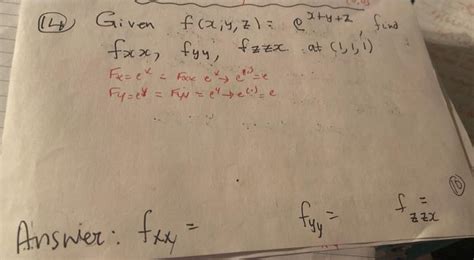 (14) Given f(x,y,z) = e^x+y+z, find
fxx, fyy, fzzx at (1,1,1)
Fx=e^x = Fxx e^x → e^(1) = e
Fy=e^y = Fyy = e^y → e^(1) = e
(10)
Answer: fxx = fyy = fzzx =